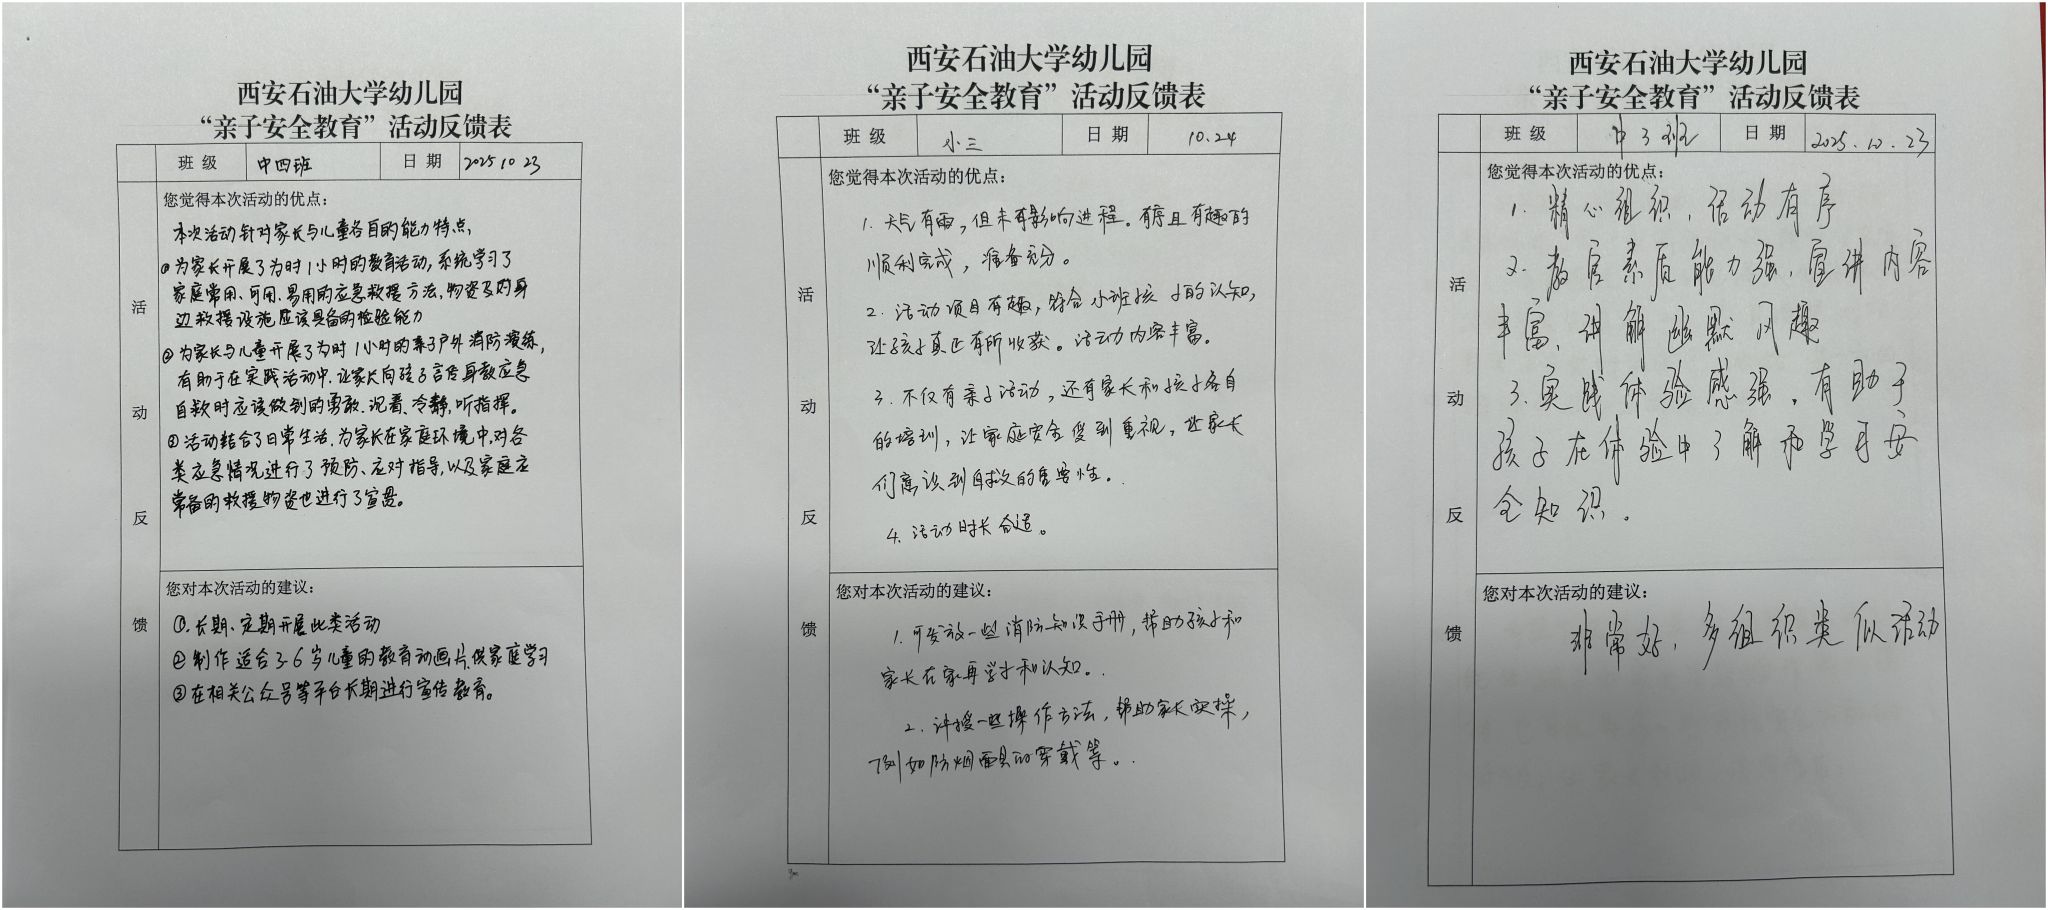 西安石油大学幼儿园
“亲子安全教育”活动反馈表
班级 中四班 日期 2025 10 23
活动反馈
您觉得本次活动的优点：
本次活动针对家长与儿童各自的能力特点，
①为家长开展了为时1小时的教育活动，系统学习了
家庭常用、可用、易用的应急救援方法，物资及对身
边救援设施应该具备的检验能力
②为家长与儿童开展了为时1小时的亲子户外消防演练，
有助于在实践活动中，让家长向孩子言传身教应急
自救时应该做到的勇敢、沉着、冷静，听指挥。
③活动结合了日常生活，为家长在家庭环境中，对各
类应急情况进行了预防、应对指导，以及家庭应
常备的救援物资也进行了宣贯。
您对本次活动的建议：
①.长期、定期开展此类活动
②制作适合3-6岁儿童的教育动画片，供家庭学习
③在相关公众号等平台长期进行宣传教育。
西安石油大学幼儿园
“亲子安全教育”活动反馈表
班级 小三 日期 10.24
活动反馈
您觉得本次活动的优点：
1. 天气有雨，但未有影响进程。有序且有趣的
顺利完成，准备充分。
2. 活动项目有趣，符合小班孩子的认知，
让孩子真正有所收获。活动内容丰富。
3. 不仅有亲子活动，还有家长和孩子各自
的培训，让家庭安全受到重视，让家长
们意识到自救的重要性。
4. 活动时长合适。
您对本次活动的建议：
1. 可发放一些消防知识手册，帮助孩子和
家长在家再学习和认知。
2. 讲授一些操作方法，帮助家长实操，
例如防烟面具的穿戴等。
西安石油大学幼儿园
“亲子安全教育”活动反馈表
班级 中3班 日期 2025.10.23
活动反馈
您觉得本次活动的优点：
1. 精心组织，活动有序
2. 教官素质能力强，宣讲内容
丰富，讲解幽默风趣
3. 实践体验感强，有助于
孩子在体验中了解和学习安
全知识。
您对本次活动的建议：
非常好，多组织类似活动